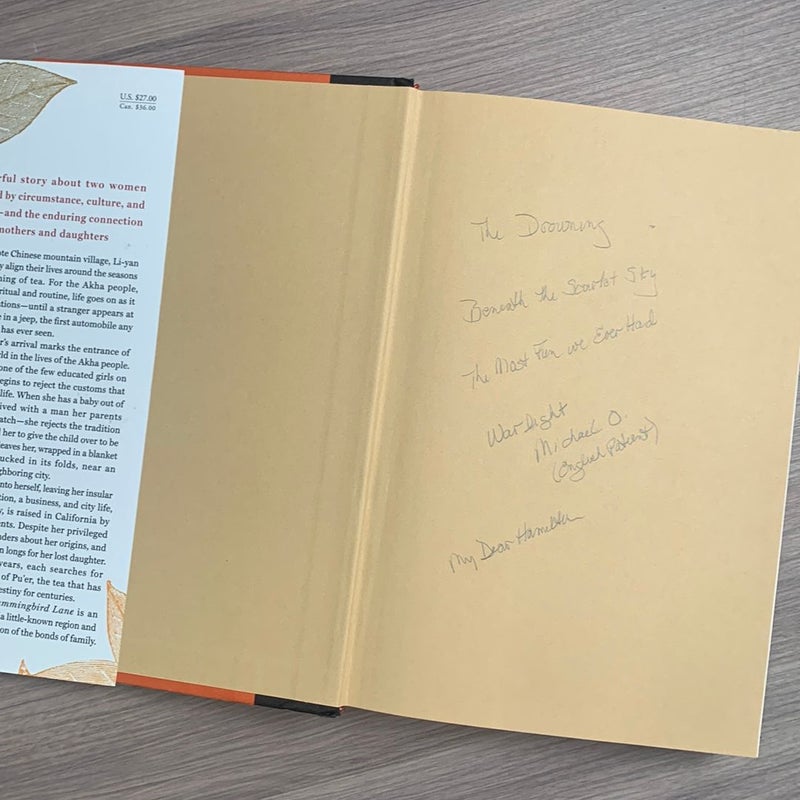 U.S. $27.00
Can. $36.00
rful story about two women
d by circumstance, culture, and
—and the enduring connection
mothers and daughters
ote Chinese mountain village, Li-yan
y align their lives around the seasons
ning of tea. For the Akha people,
ritual and routine, life goes on as it
tions—until a stranger appears at
e in a jeep, the first automobile any
has ever seen.
r's arrival marks the entrance of
ld in the lives of the Akha people.
one of the few educated girls on
egins to reject the customs that
life. When she has a baby out of
ived with a man her parents
atch—she rejects the tradition
her to give the child over to be
leaves her, wrapped in a blanket
ucked in its folds, near an
ghboring city.
nto herself, leaving her insular
tion, a business, and city life,
y, is raised in California by
nts. Despite her privileged
nders about her origins, and
n longs for her lost daughter.
years, each searches for
of Pu'er, the tea that has
estiny for centuries.
mmingbird Lane is an
a little-known region and
on of the bonds of family.
The Drowning
Beneath the Scarlet Sky
The Most Fun we Ever Had
War Light
Michael O.
(English Patient)
My Dear Hamilton